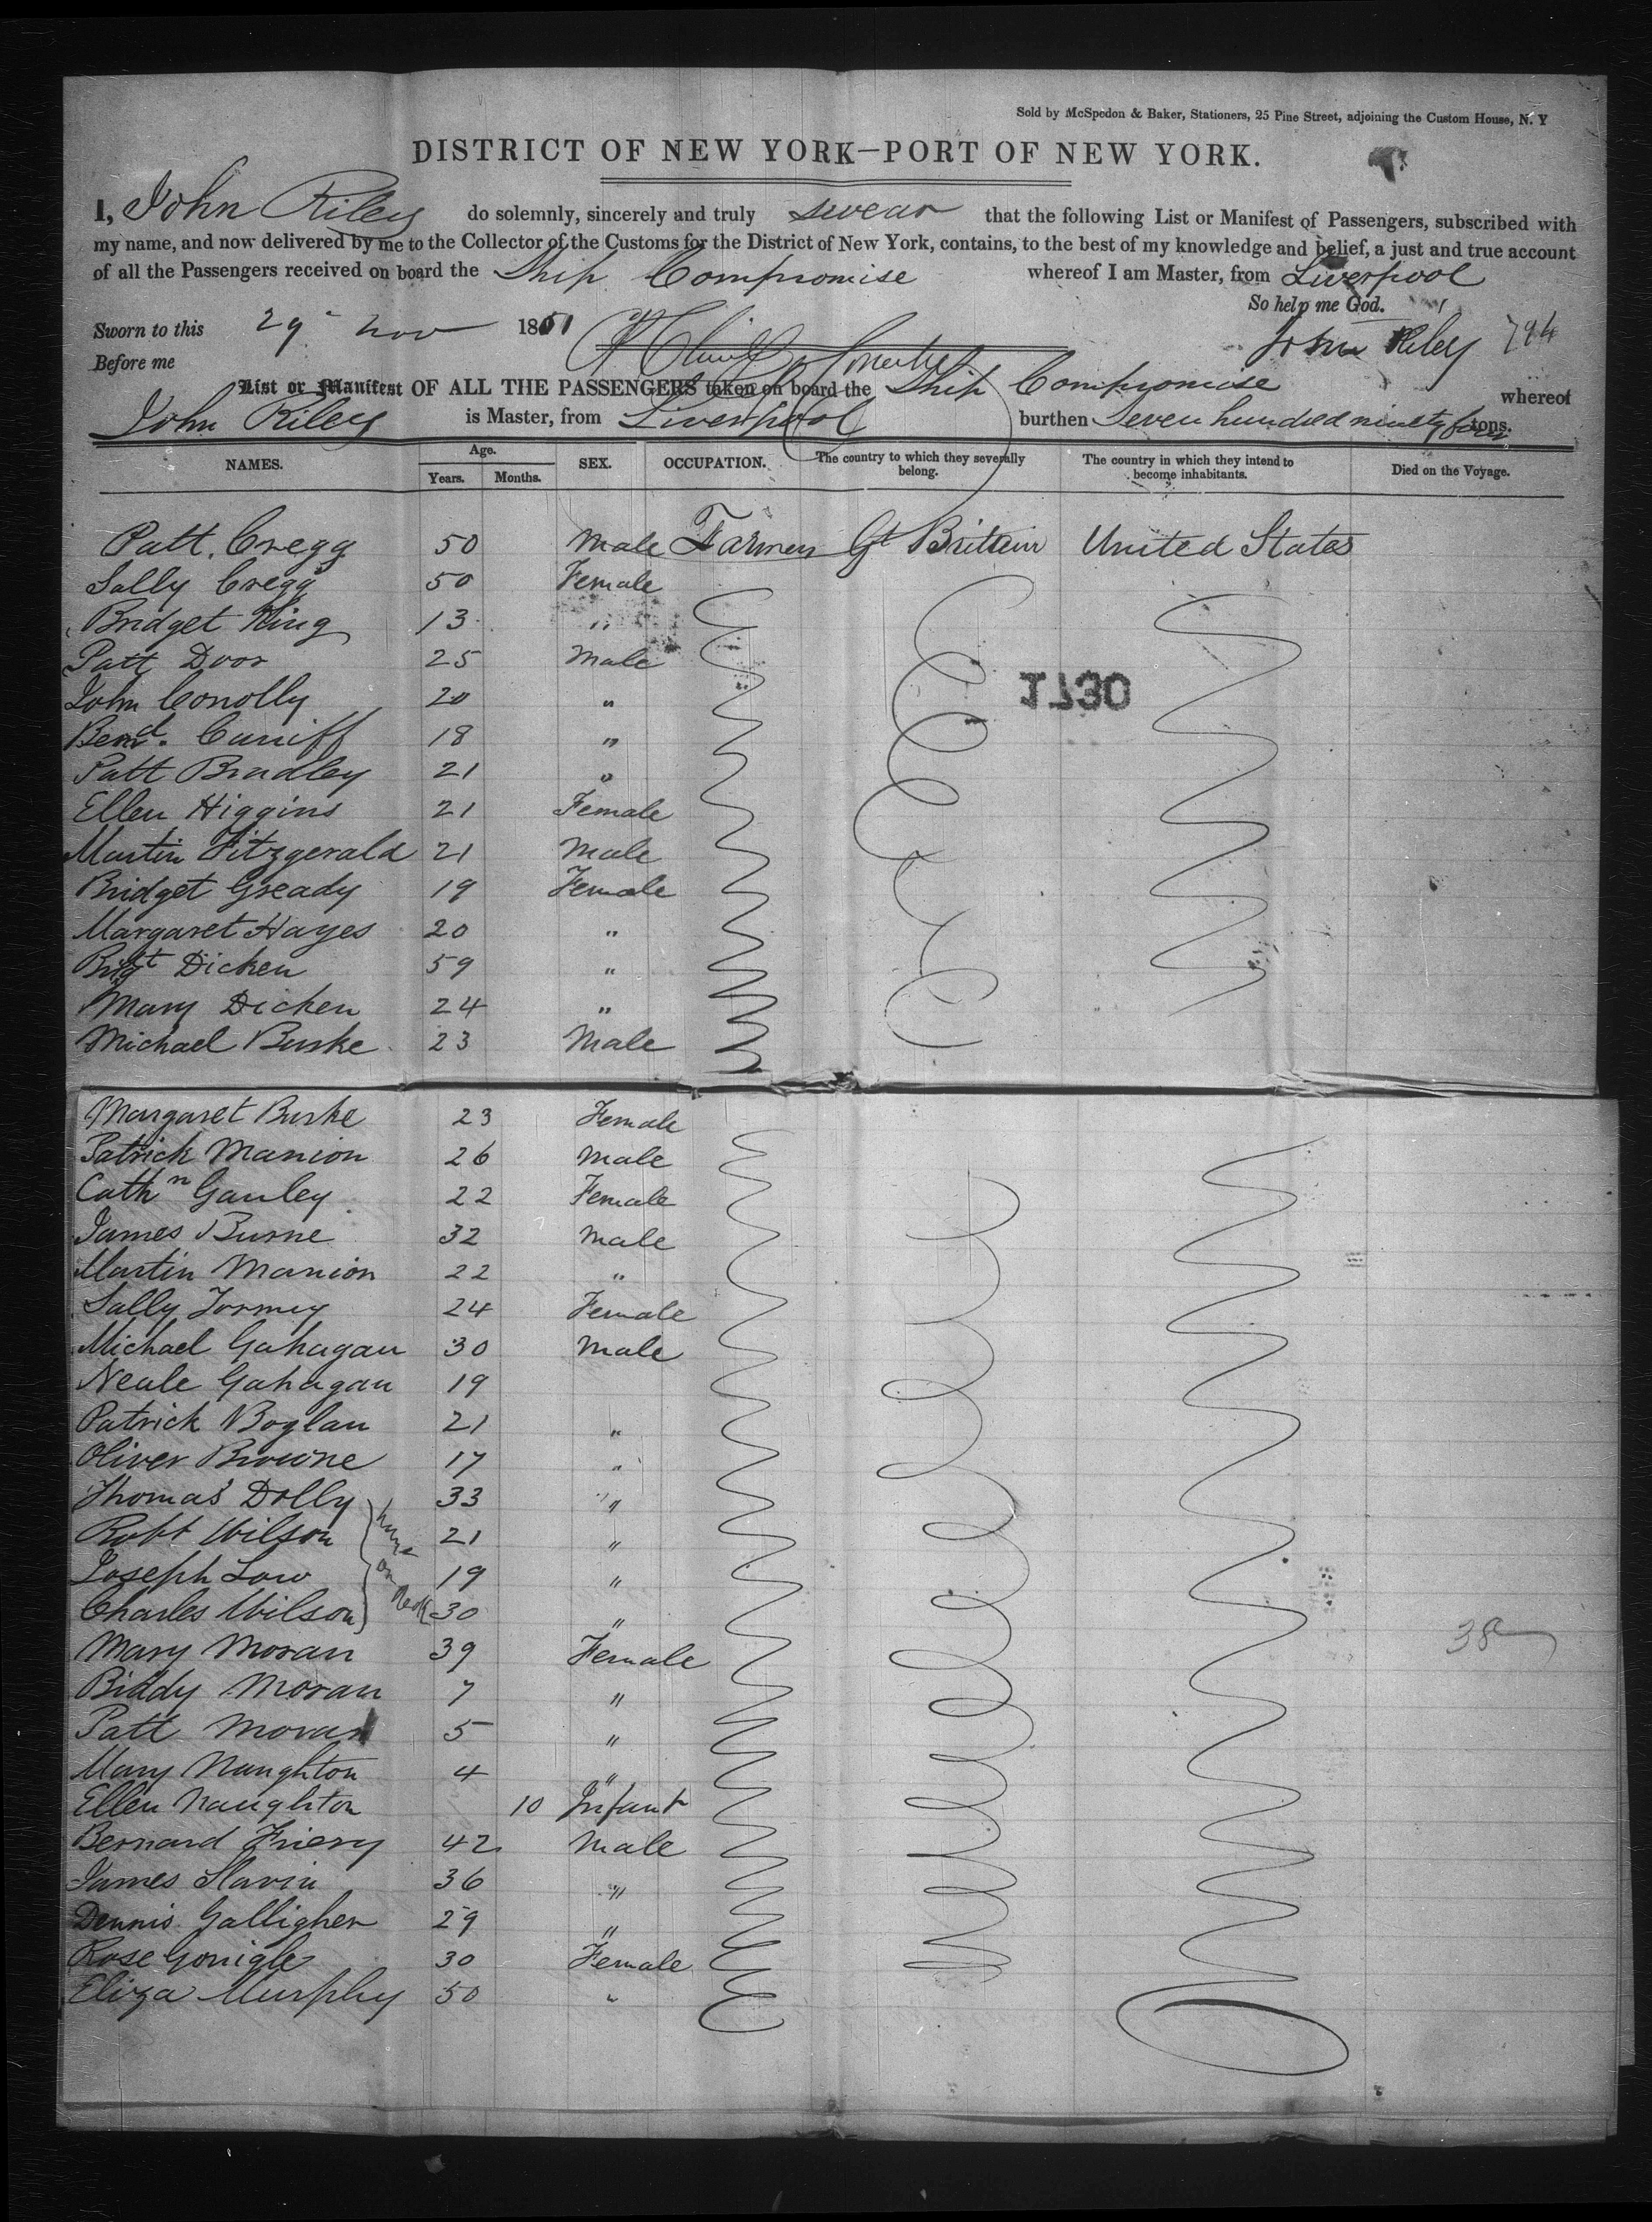 Sold by McSpedon & Baker, Stationers, 25 Pine Street, adjoining the Custom House, N. Y
DISTRICT OF NEW YORK—PORT OF NEW YORK.
I, John Riley do solemnly, sincerely and truly swear that the following List or Manifest of Passengers, subscribed with
my name, and now delivered by me to the Collector of the Customs for the District of New York, contains, to the best of my knowledge and belief, a just and true account
of all the Passengers received on board the Ship Compromise whereof I am Master, from Liverpool
So help me God.
Sworn to this 29 Nov 1851
John Riley 794
Before me
List or Manifest OF ALL THE PASSENGERS taken on board the Ship Compromise whereof
John Riley is Master, from Liverpool burthen Seven hundred ninety four tons.
NAMES. Age. Years. Months. SEX. OCCUPATION. The country to which they severally belong. The country in which they intend to become inhabitants. Died on the Voyage.
Patt. Cregg 50 Male Farmer Gt Britain United States
Sally Cregg 50 Female
Bridget King 13 "
Patt Door 25 Male
1730
John Conolly 20 "
Bernd. Cuniff 18 "
Patt Bradley 21 "
Ellen Higgins 21 Female
Martin Fitzgerald 21 Male
Bridget Gready 19 Female
Margaret Hayes 20 "
Bridgt Dicken 59 "
Mary Dicken 24 "
Michael Burke 23 Male
Margaret Burke 23 Female
Patrick Manion 26 Male
Cathn Gauley 22 Female
James Burne 32 Male
Martin Manion 22 "
Sally Tormey 24 Female
Michael Gahagan 30 Male
Neale Gahagan 19
Patrick Boglan 21 "
Oliver Browne 17 "
Thomas Dolly 33 "
Robt Wilson 21 "
Joseph Low 19 "
Charles Wilson 30 "
on deck
Mary Moran 39 Female
38
Biddy Moran 7 "
Patt Moran 5 "
Mary Naughton 4 "
Ellen Naughton 10 Infant
Bernard Friery 42 Male
James Slavin 36 "
Dennis Galligher 29 "
Rose Gonigle 30 Female
Eliza Murphy 50 "